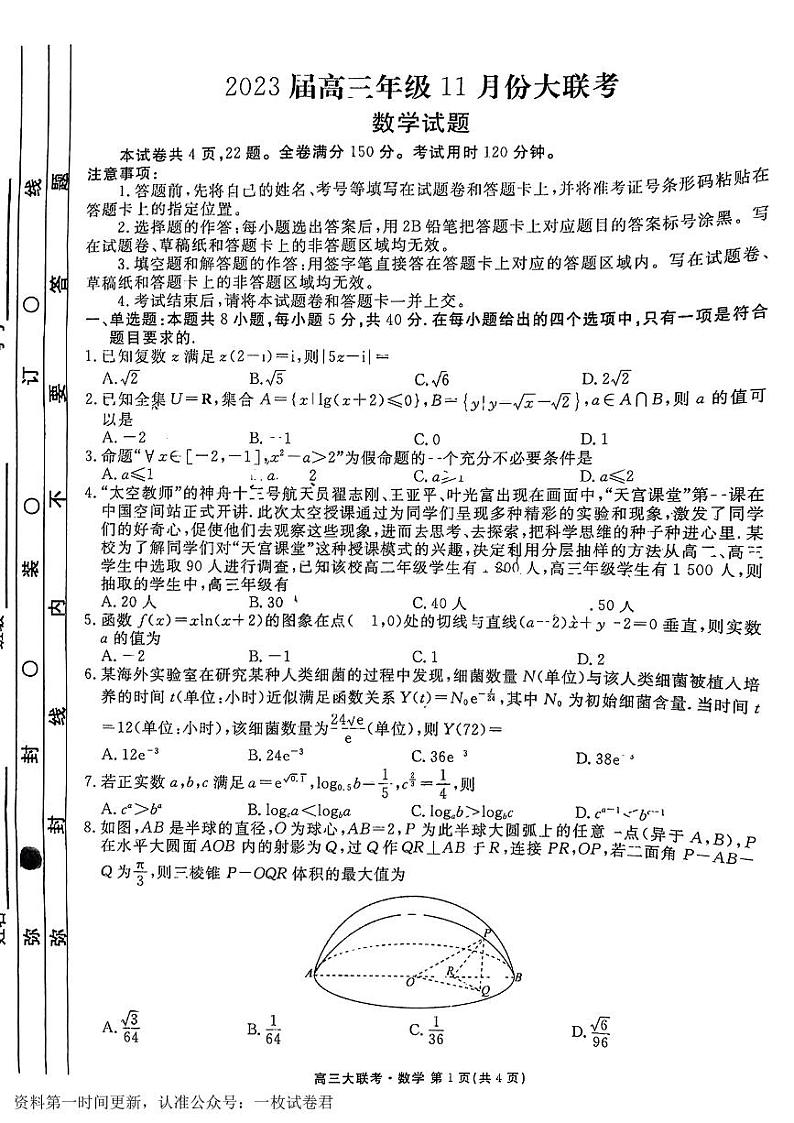 2023 届高三年级 11 月份大联考
数学试题
本试卷共 4 页,22 题。全卷满分 150 分。考试用时 120 分钟。
注意事项:
1. 答题前,先将自己的姓名、考号等填写在试题卷和答题卡上,并将准考证号条形码粘贴在
答题卡上的指定位置。
2. 选择题的作答:每小题选出答案后,用 2B 铅笔把答题卡上对应题目的答案标号涂黑。写
在试题卷、草稿纸和答题卡上的非答题区域均无效。
3. 填空题和解答题的作答:用签字笔直接答在答题卡上对应的答题区域内。写在试题卷、
草稿纸和答题卡上的非答题区域均无效。
4. 考试结束后,请将本试题卷和答题卡一并上交。
一、单选题:本题共 8 小题,每小题 5 分,共 40 分. 在每小题给出的四个选项中,只有一项是符合
题目要求的.
1. 已知复数 z 满足 z(2-i)=i,则|5z-i|=
A.√2 B.√5 C.√6 D. 2√2
2. 已知全集 U=R,集合 A={x|lg(x+2)≤0},B={y|y=√x-√2},a∈A∩B,则 a 的值可
以是
A. -2 B. -1 C. 0 D. 1
3. 命题“∀x∈[-2,-1],x²-a>2”为假命题的一个充分不必要条件是
A. a≤1 a 2 C. a≥ D. a≤2
4. “太空教师”的神舟十三号航天员翟志刚、王亚平、叶光富出现在画面中,“天宫课堂”第一课在
中国空间站正式开讲. 此次太空授课通过为同学们呈现多种精彩的实验和现象,激发了同学
们的好奇心,促使他们去观察这些现象,进而去思考、去探索,把科学思维的种子种进心里. 某
校为了解同学们对“天宫课堂”这种授课模式的兴趣,决定利用分层抽样的方法从高二、高三
学生中选取 90 人进行调查,已知该校高二年级学生有 人,高三年级学生有 1 500 人,则
抽取的学生中,高三年级有
A. 20 人 B. 30 C. 40 人 . 50 人
5. 函数 f(x)=xln(x+2)的图象在点( 1,0)处的切线与直线(a-2)x+y-2=0 垂直,则实数
a 的值为
A. -2 B. -1 C. 1 D. 2
6. 某海外实验室在研究某种人类细菌的过程中发现,细菌数量 N(单位)与该人类细菌被植入培
养的时间 t(单位:小时)近似满足函数关系 Y(t)=N₀e^(-t/24),其中 N₀ 为初始细菌含量. 当时间 t
=12(单位:小时),该细菌数量为 24√e/e (单位),则 Y(72)=
A. 12e⁻³ B. 24e⁻³ C. 36e ³ D. 38e
7. 若正实数 a,b,c 满足 a=e^√0.1,log₀.₅b=1/5,c^(2/3)=1/4,则
A. cᵃ>bᵃ B. log_c a<log_b a C. log_a b>log_b c D. cᵃ⁻¹<bᶜ⁻¹
8. 如图,AB 是半球的直径,O 为球心,AB=2,P 为此半球大圆弧上的任意一点(异于 A,B),P
在水平大圆面 AOB 内的射影为 Q,过 Q 作 QR⊥AB 于 R,连接 PR,OP,若二面角 P-AB-
Q 为 π/3,则三棱锥 P-OQR 体积的最大值为
A
O
R
P
Q
B
A. √3/64 B. 1/64 C. 1/36 D. √6/96
高三大联考·数学 第 1 页(共 4 页)
资料第一时间更新,认准公众号:一枚试卷君
弥 封 ○ 装 ○ 订 ○ 线
弥 封 线 内 不 要 答 题